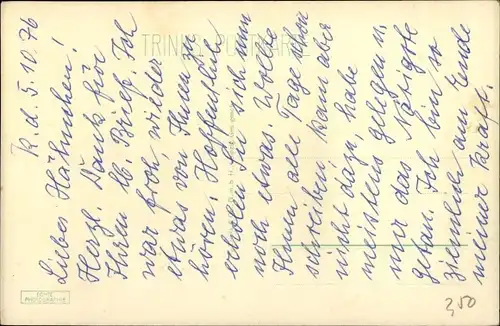 K. d. 5. 10. 76
Liebes Hähnchen!
Herzl. Dank für
Ihren lb. Brief. Ich
war froh, wieder
etwas von Ihnen zu
hören. Hoffentlich
erholen Sie sich nun
noch etwas. Wollte
Ihnen alle Tage schon
schreiben kam aber
nicht dazu, habe
meistens gelegen u.
nur das Nötigste
getan. Ich bin so
ziemlich am Ende
meiner Kraft.
TRINKS-POSTKARTE
ECHTE
PHOTOGRAPHIE
2,50